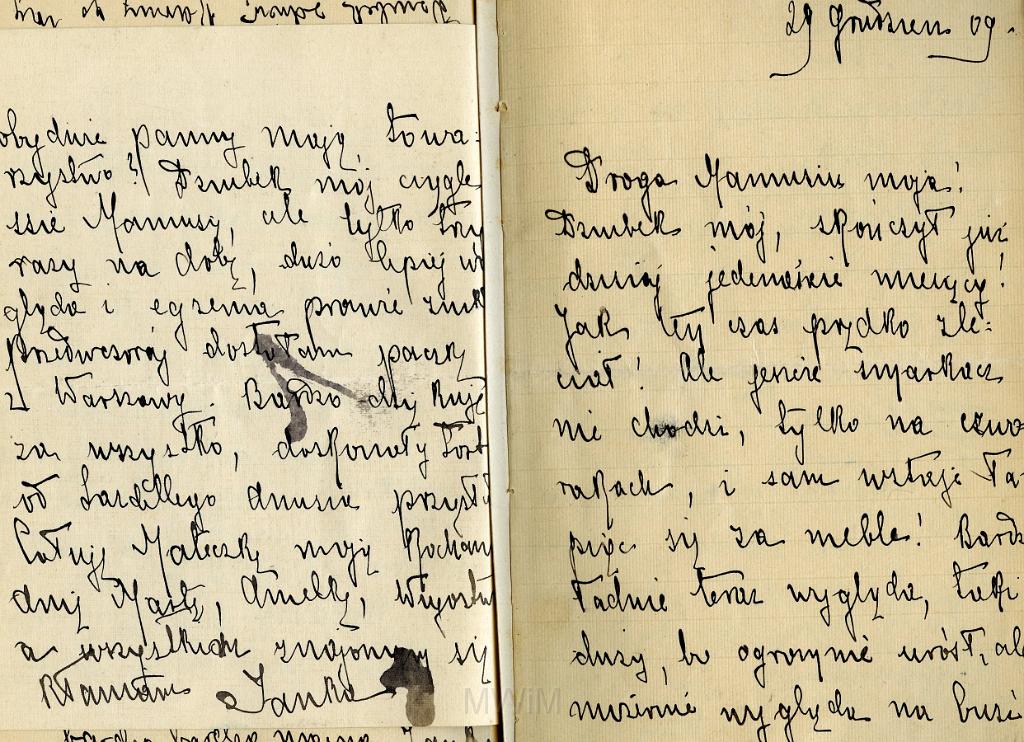 obydwie panny mają towa=
rzystwo? Dziubek mój ciągle
ssie Mamusy, ale tylko trzy
razy na dobę, dużo lepiej wy
gląda i egzema prawie znik
Przedwczoraj dostałam paczkę
z Warszawy. Bardzo dziękuję
za wszystko, doskonały tort
od
Całuję Mateczkę moją Kochaną
a wszystkich znajomym się
kłaniam Janka
29 Grudzień 09.
Droga Mamusiu moja!
Dziubek mój, skończył już
dzisiaj jedenaście miesięcy!
Jak ten czas prędko zle=
ciał! Ale jeszcze smarkacz
nie chodzi, tylko na czwo
rakach, i sam wstaje ła
piąc się za meble! Bardz
ładnie teraz wygląda, taki
duży, bo ogromnie urósł, ale
mizernie wygląda na buzi
MWiM